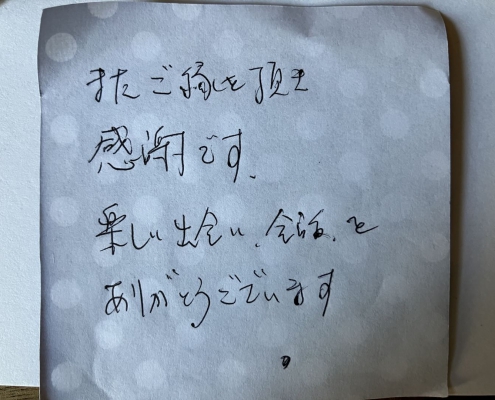 またご縁を頂き
感謝です.
楽しい出会い.会話.を
ありがとうございます